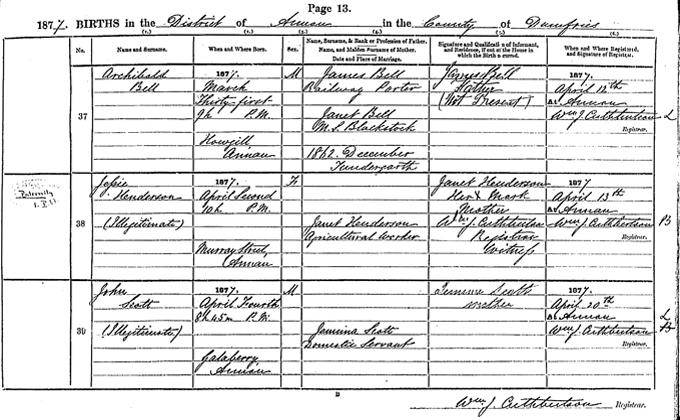 Page 13.
1877. BIRTHS in the District of Annan in the County of Dumfries
No.
Name and Surname.
When and Where Born.
Sex.
Name, Surname, & Rank or Profession of Father.
Name, and Maiden Surname of Mother.
Date and Place of Marriage.
Signature and Qualification of Informant, and Residence, if out of the House in which the Birth occurred.
When and Where Registered, and Signature of Registrar.
37
Archibald
Bell
1877.
March
Thirty first
9h P.M.
Howgill
Annan
M
James Bell
Railway Porter
Janet Bell
M.S. Blackstock
1862. December
Tundergarth
James Bell
Father
(Not Present)
1877
April 12th
At Annan
Wm J. Cuthbertson
Registrar.
38
Paternity
Jessie
Henderson
(Illegitimate)
1877.
April Second
10h P.M.
Murray Street,
Annan
F
Janet Henderson
Agricultural Worker
Janet Henderson
Her X Mark
Mother
Wm J. Cuthbertson
Registrar
Witness
1877
April 13th
At Annan
Wm J. Cuthbertson
Registrar.
39
John
Scott
(Illegitimate)
1877.
April Fourth
8h 45m P.M.
Galaberry
Annan
M
Jemima Scott
Domestic Servant
Jemima Scott
Mother
1877.
April 20th
At Annan
Wm J. Cuthbertson
Registrar.
Wm. J. Cuthbertson Registrar.